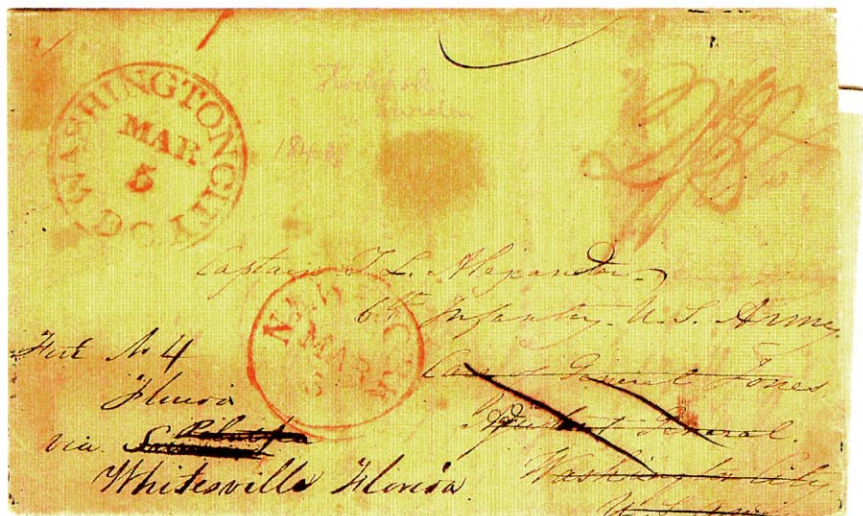 WASHINGTON CITY D.C.
MAR
5
184
NEW-YORK
MAR
Captain T. L. Alexander
6th Infantry. U. S. Army,
Care of General Jones
Adjutant General.
Washington City
Fort No 4
Florida
via
Whitesville Florida